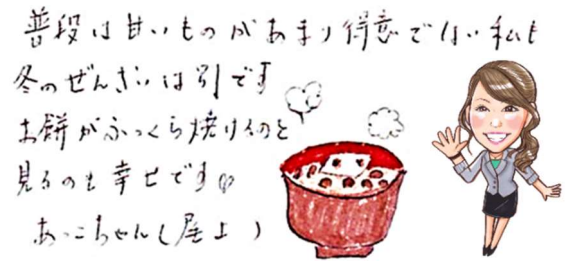 普段は甘いものがあまり得意でない私も
冬のぜんざいは別です
お餅がふっくら焼けるのを
見るのも幸せです♡
あっこちゃん(尾上)